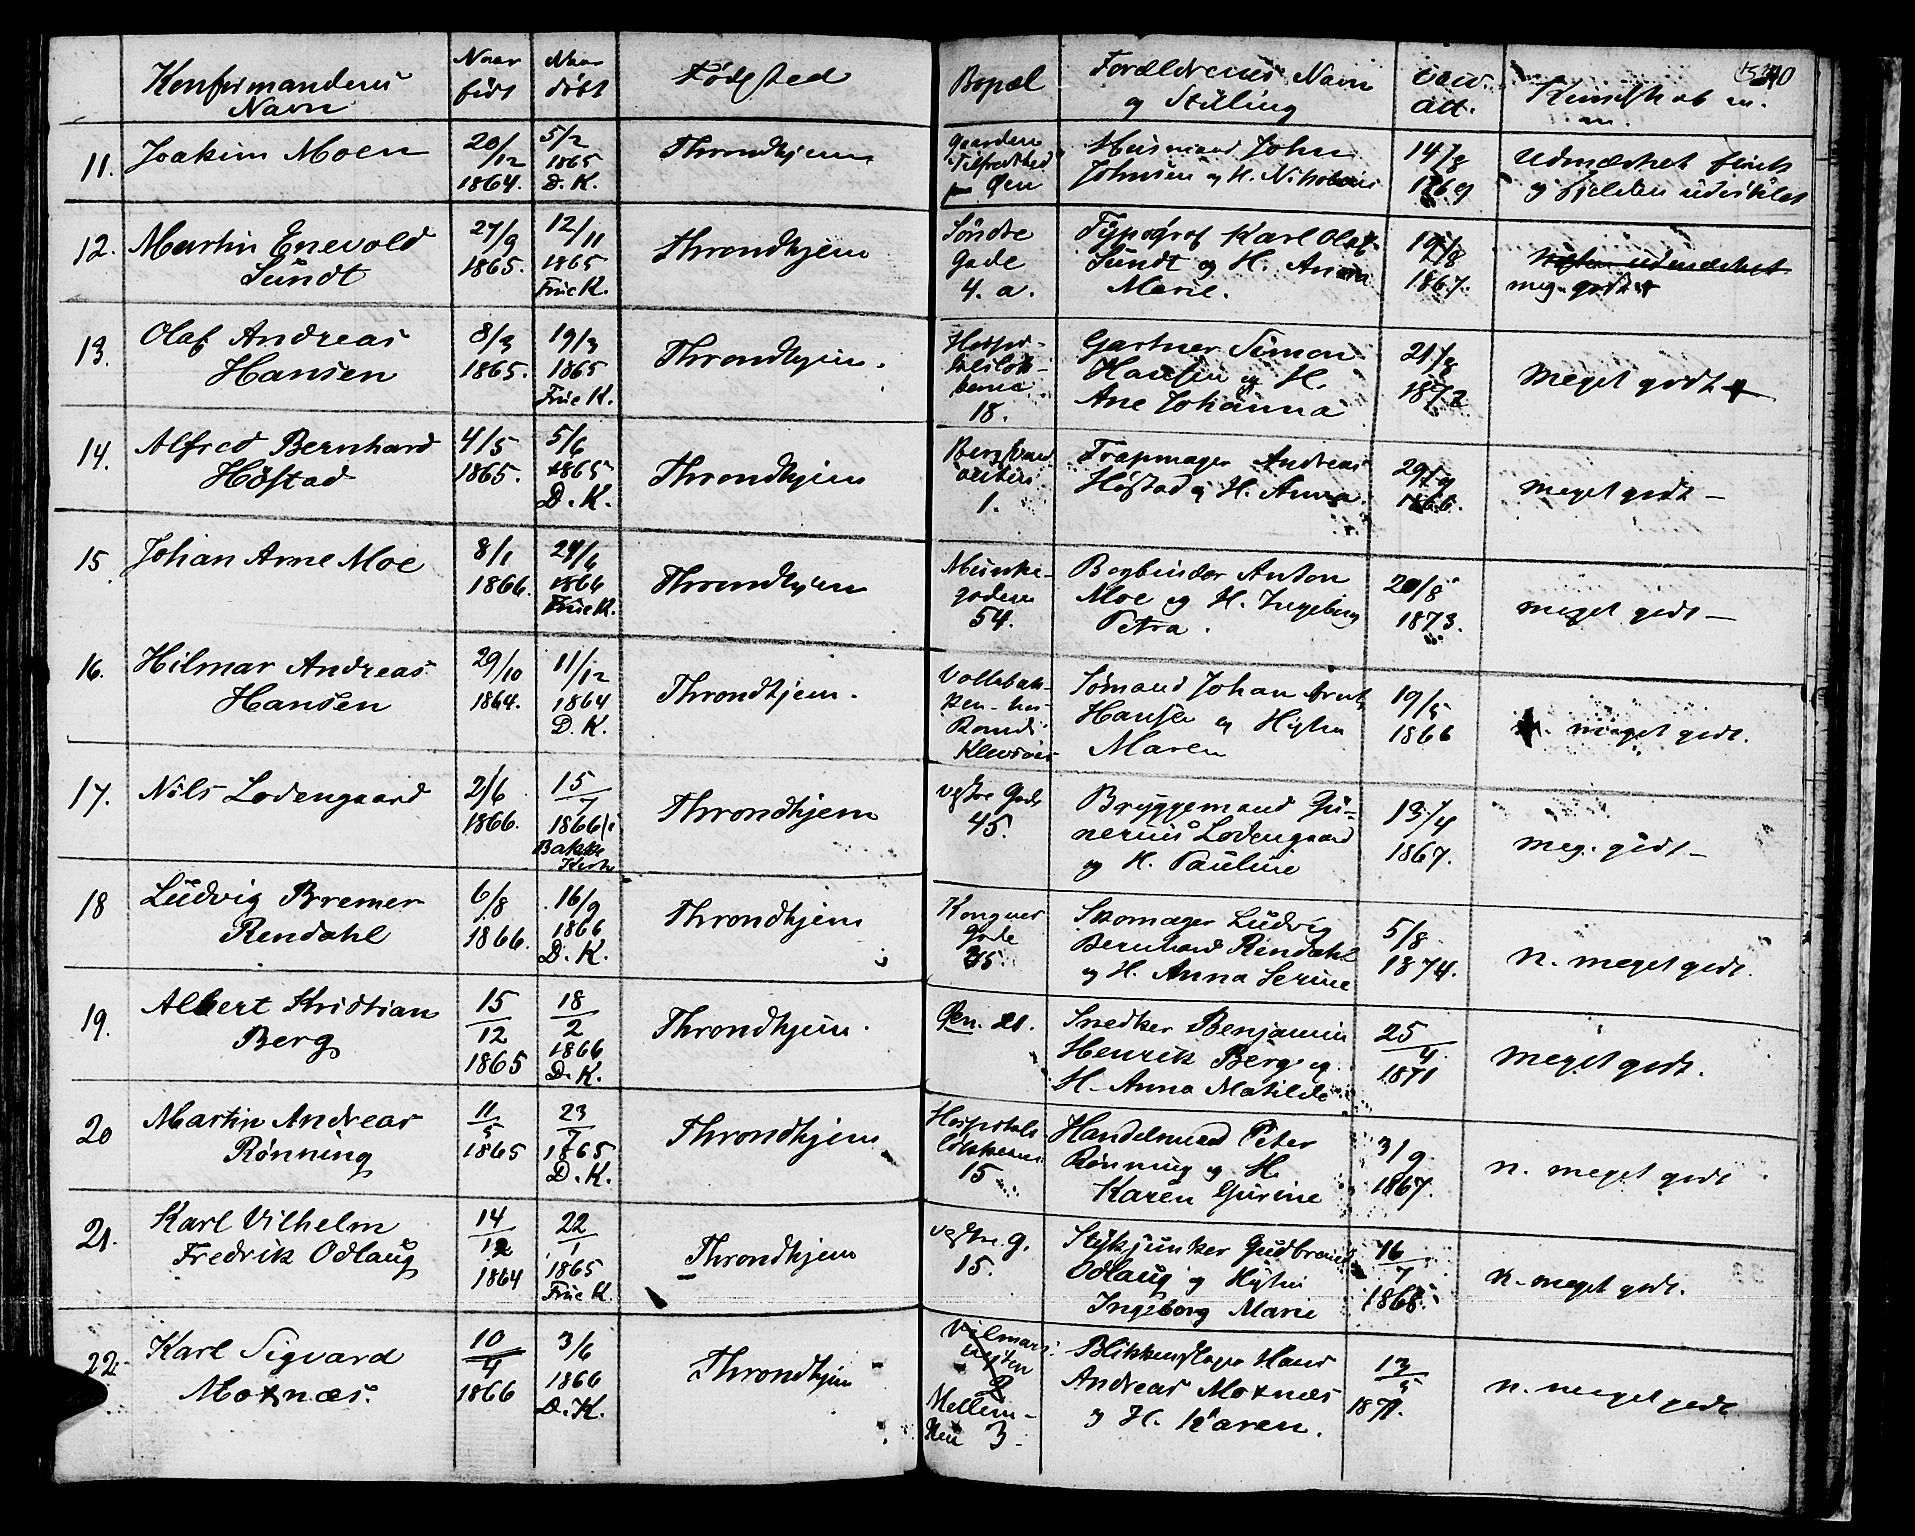 Konfirmandens
Navn
Naar
født
Naar
døbt
Fødested
Bopæl
Forældrenes Navn
og Stilling
vacc.
att.
Kundskab m.
m.
11. Joakim Moen
20/12
1864.
5/2
1865
D. K.
Throndhjem
Gaarden
Tilfredshed
Øen
Husmand John
Johnsen og H. Nikoline
14/8
1869
Udmærket flink
og sjelden udviklet
12. Martin Enevold
Sundt
27/9
1865.
12/11
1865
Frue K.
Throndhjem
Søndre
Gade
4. a.
Typograf Karl Olaf
Sundt og H. Anna
Marie.
19/8
1867.
Næsten udmærket
meg. godt
13. Olaf Andreas
Hansen
8/3
1865.
19/3
1865
Frue K.
Throndhjem.
Hospi-
talsløk-
kerne
18.
Gartner Simon
Hansen og H.
Ane Johanna
21/8
1872
Meget godt
14. Alfred Bernhard
Høstad
4/5
1865.
5/6
1865
D. K.
Throndhjem
1.
Andreas
Høstad og H. Anna
29/9
1866.
meget godt -
15. Johan Arne Moe
8/1
1866.
24/6
1866
Frue K.
Throndhjem
Munke-
gaden
54.
Bogbinder Anton
Moe og H. Ingeborg
Petra.
20/8
1873.
meget godt -
16. Hilmar Andreas
Hansen
29/10
1864.
11/12
1864
D. K.
Throndhjem.
Vollabak-
ken hos
Sømand Johan Arnt
Hansen og Hustru
Maren
19/5
1866
meget godt.
17. Nils Lodengaard
2/6
1866.
15/7
1866 i
Bakke
Kirke
Throndhjem
Vestre Gade
45.
Bryggemand Gu-
nerius Lodengaard
og H. Pauline
13/4
1867.
meg. godt -
18 Ludvig Bremer
Rendahl
6/8
1866.
16/9
1866
D. K.
Throndhjem
Kongens
Gade
Skomager Ludvig
Bernhard Rendahl
og H. Anna Serine
5/8
1874.
n. meget godt.
19. Albert Kristian
Berg
15/12
1865
18/2
1866
D. K.
Throndhjem.
Øen. 21.
Snedker Benjamin
Henrik Berg og
H. Anna Matilde
25/4
1871
Meget godt.
20 Martin Andreas
Rønning
11/5
1865
23/7
1865
D. K.
Throndhjem
Hospitals
løkkerne
15
Handelsmand Peter
Rønning og H.
Karen Gurine
3/9
1867.
n. meget godt
21. Karl Vilhelm
Fredrik Odlaug
14/12
1864
22/1
1865
Frue K.
Throndhjem
Vestre G.
15.
Stykjunker Gudbrand
Odlaug og Hustru
Ingeborg Marie
16/7
1868.
n. meget godt.
22. Karl Sigvard
Moxnæs.
10/4
1866
3/6
1866
D. K.
Throndhjem
Mellem-
3
Blikkenslager Hans
Andreas Moxnæs
og H. Karen.
13/5
1871.
n. meget godt